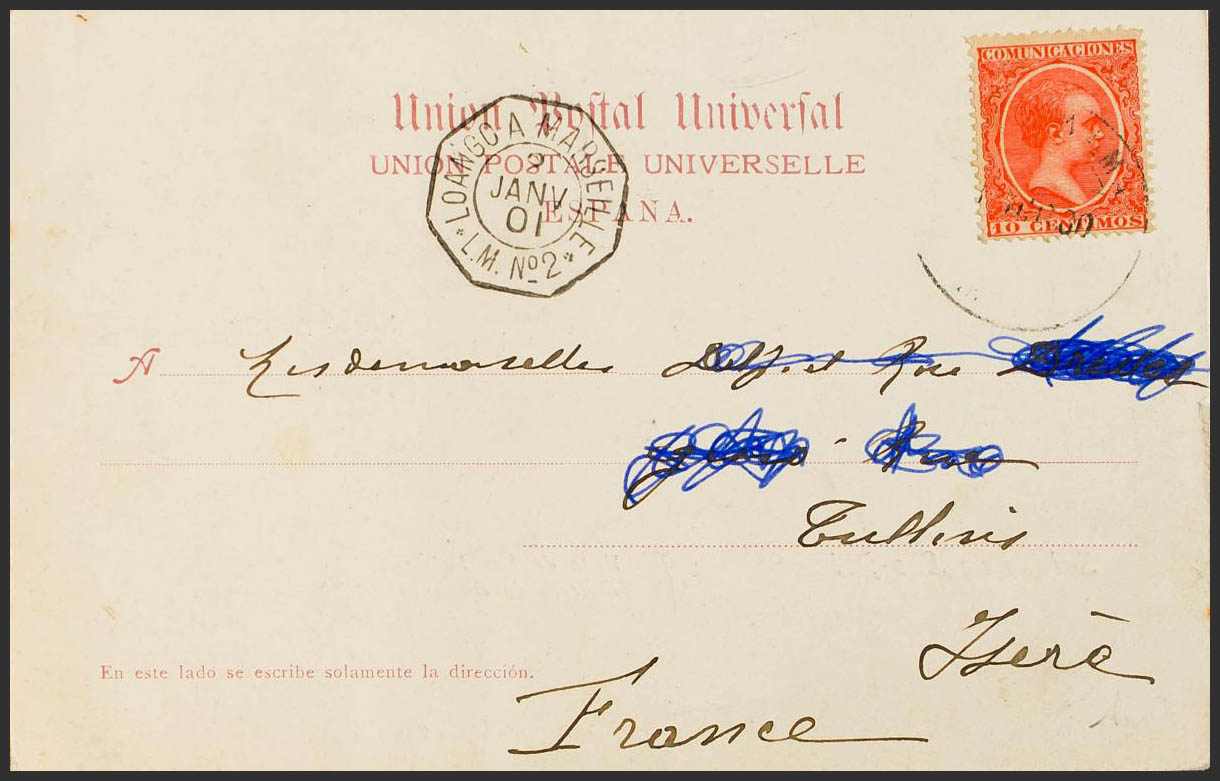 COMUNICACIONES
10 CENTIMOS
Union Postal Universal
UNION POSTALE UNIVERSELLE
ESPAÑA.
LOANGO A MARSEILLE
2
JANV
01
* L.M. Nº 2 *
A Mesdemoiselles et Rose
Tullins
Isère
En este lado se escribe solamente la dirección.
France